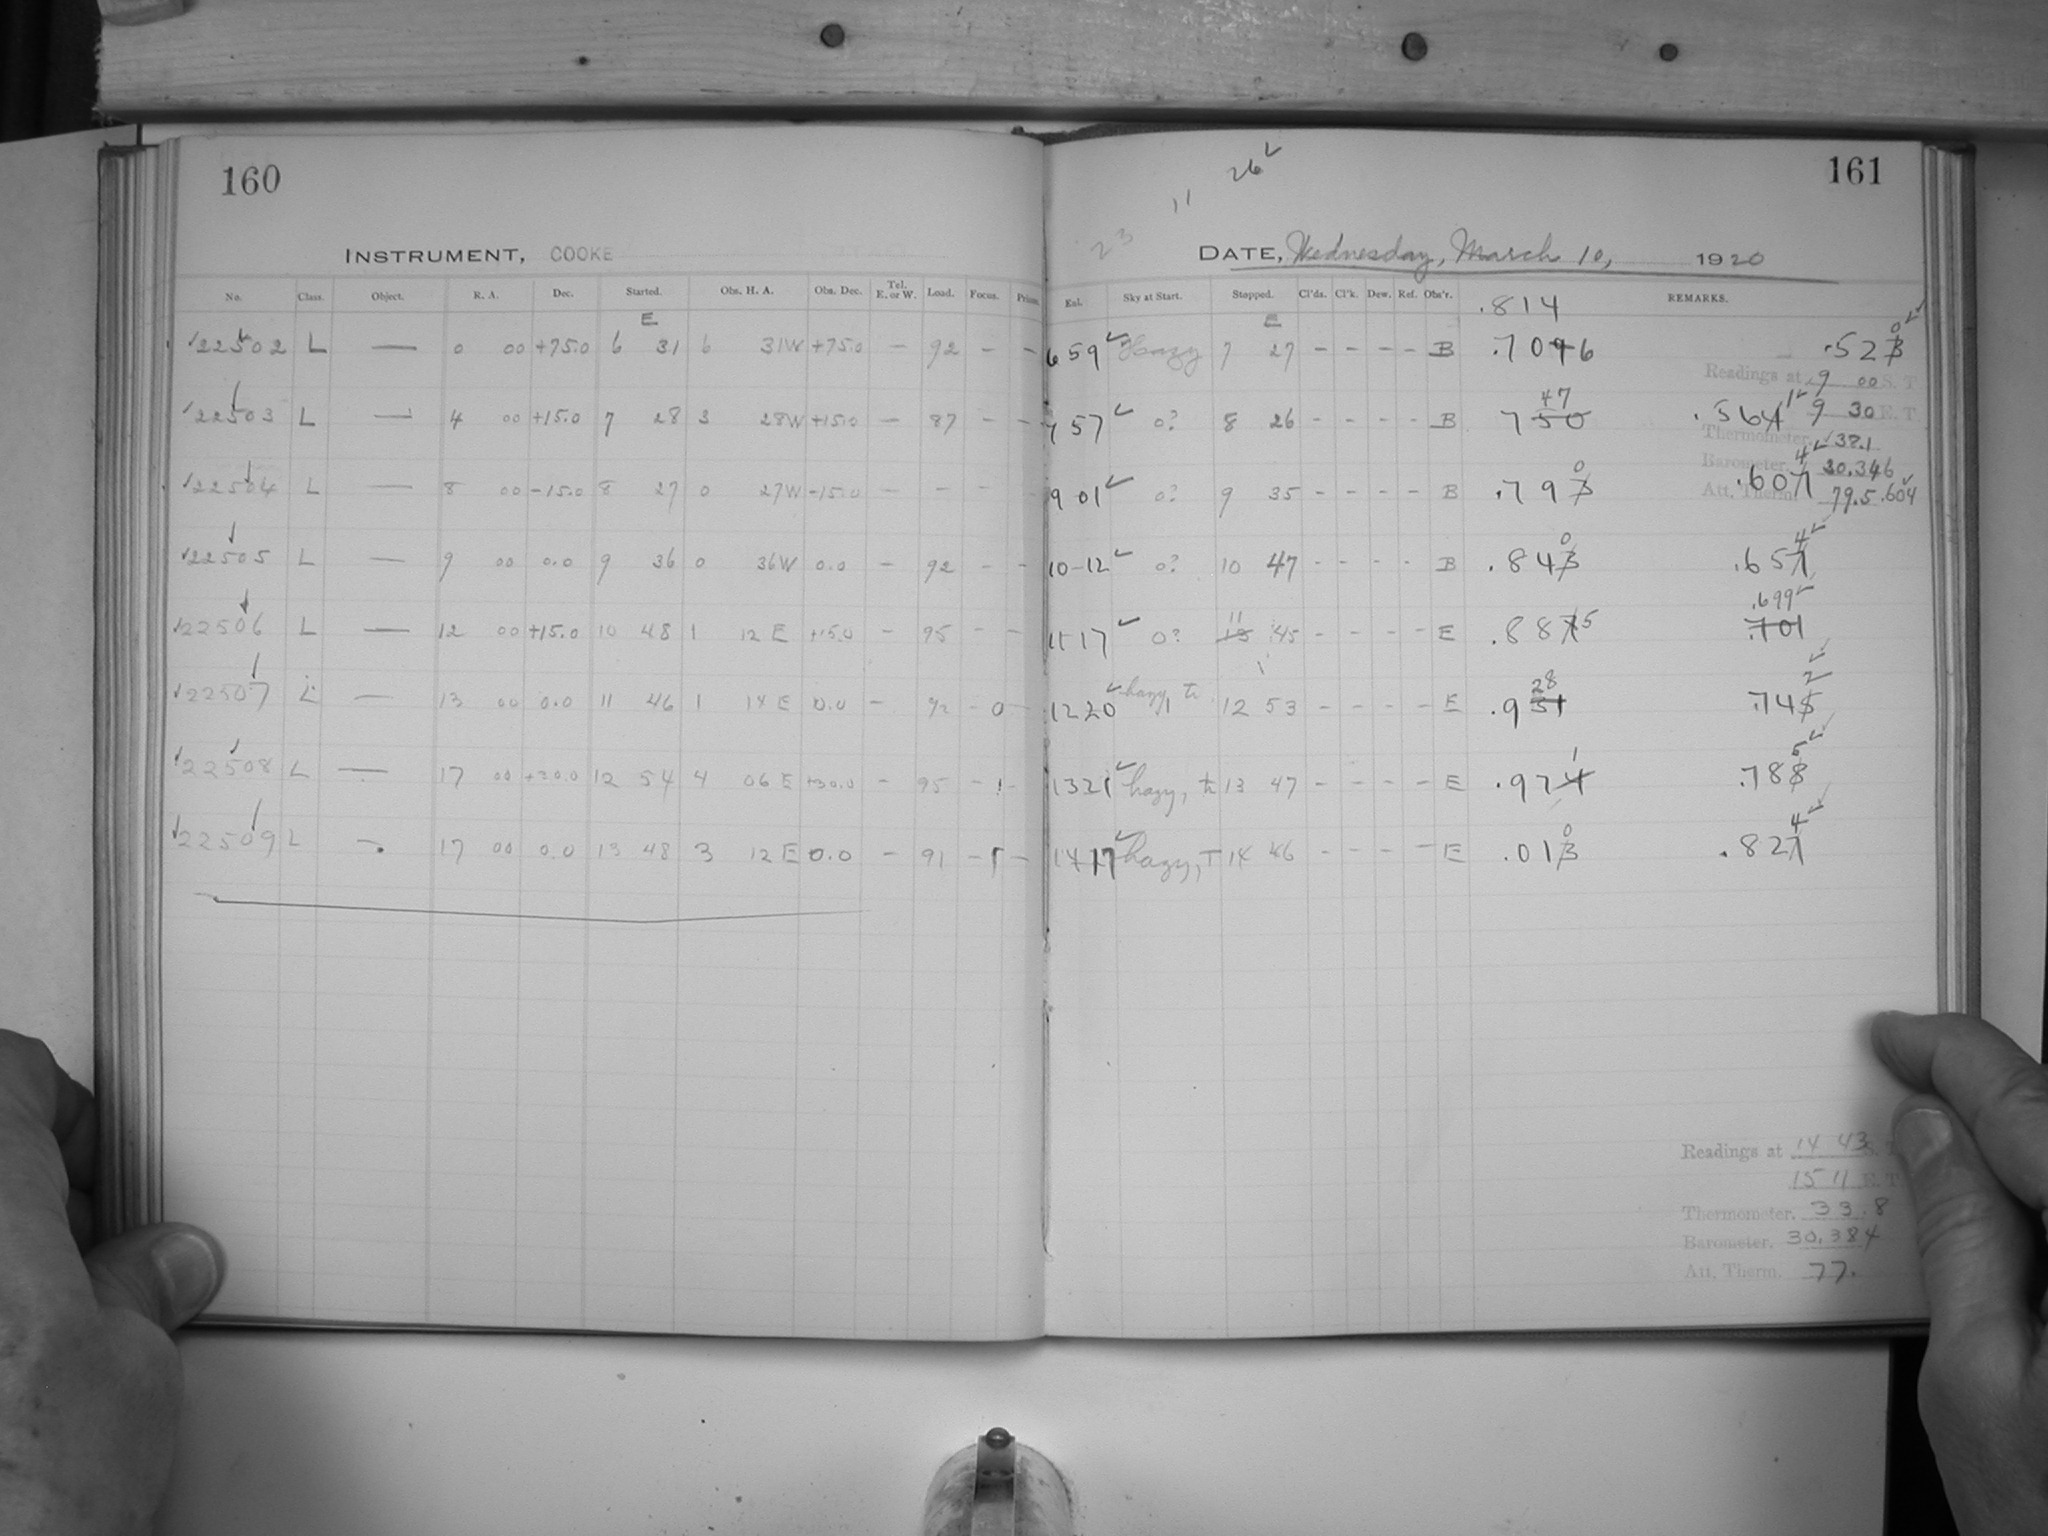 160
INSTRUMENT, COOKE
No. Class. Object. R. A. Dec. Started. Obs. H. A. Obs. Dec. Tel. E. or W. Load. Focus. Prism.
E
22502 L — 0 00 +75.0 6 31 6 31W +75.0 — 92 - -
22503 L — 4 00 +15.0 7 28 3 28W +15.0 — 87 - -
22504 L — 8 00 -15.0 8 27 0 27W -15.0 — - - -
22505 L — 9 00 0.0 9 36 0 36W 0.0 - 92 - -
22506 L — 12 00 +15.0 10 48 1 12 E +15.0 - 95 - -
22507 L — 13 00 0.0 11 46 1 14 E 0.0 - 92 - 0 -
22508 L — 17 00 +30.0 12 54 4 06 E +30.0 - 95 - -
22509 L - 17 00 0.0 13 48 3 12 E 0.0 - 91 - -
161
26 ✓
11
23
DATE, Wednesday, March 10, 1920
Exl. Sky at Start. Stopped. Cl'ds. Cl'k. Dew. Ref. Obs'r. .814 REMARKS.
E
6 59 ✓ Hazy 7 27 - - - - B .7096 .523 0 ✓
Readings at 9 00 S. T.
7 57 ✓ 0? 8 26 - - - - B 750 47 .564 1 ✓ 9 30 E. T.
Thermometer, 38.1
Barometer, 30.346
9 01 ✓ 0? 9 35 - - - - B .793 0 .607 4 ✓ Att. Therm. 79.5 .604 ✓
10-12 ✓ 0? 10 47 - - - - B .843 0 .657 4 ✓
11 17 ✓ 0? 11 45 - - - - E .887 5 .701 .699 ✓
12 20 ✓ hazy, tr 12 53 - - - - E .931 28 .745 2 ✓
13 21 ✓ hazy, tr 13 47 - - - - E .974 1 .788 5 ✓
14 17 ✓ hazy, T 14 46 - - - - E .013 0 .827 4 ✓
Readings at 14 43 S. T
15 11 E. T
Thermometer, 33.8
Barometer, 30.384
Att. Therm. 77.